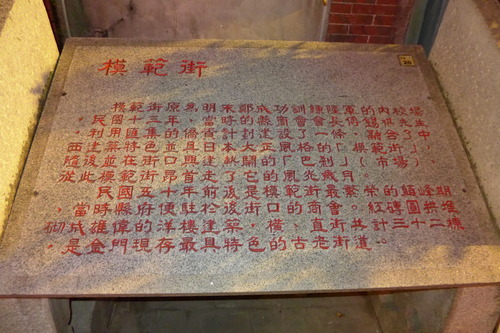 模範街
模範街原為明末鄭成功訓練陸軍的內校場
，民國十三年，當時的縣商會會長傅錫琪先生
，利用匯集的僑資計劃建設了一條，融合了中
西建築特色並具日本大正風格的「模範街」，
隨後並在街口興建軟關的「巴剎」（市場），
從此模範街昂首走了它的風光歲月。
民國五十年前後是模範街最繁榮的顛峰期
，當時縣府便駐於後街口的商會。紅磚圓拱堆
砌成雄偉的洋樓建築，橫、直街共計三十二棟
，是金門現存最具特色的古老街道。